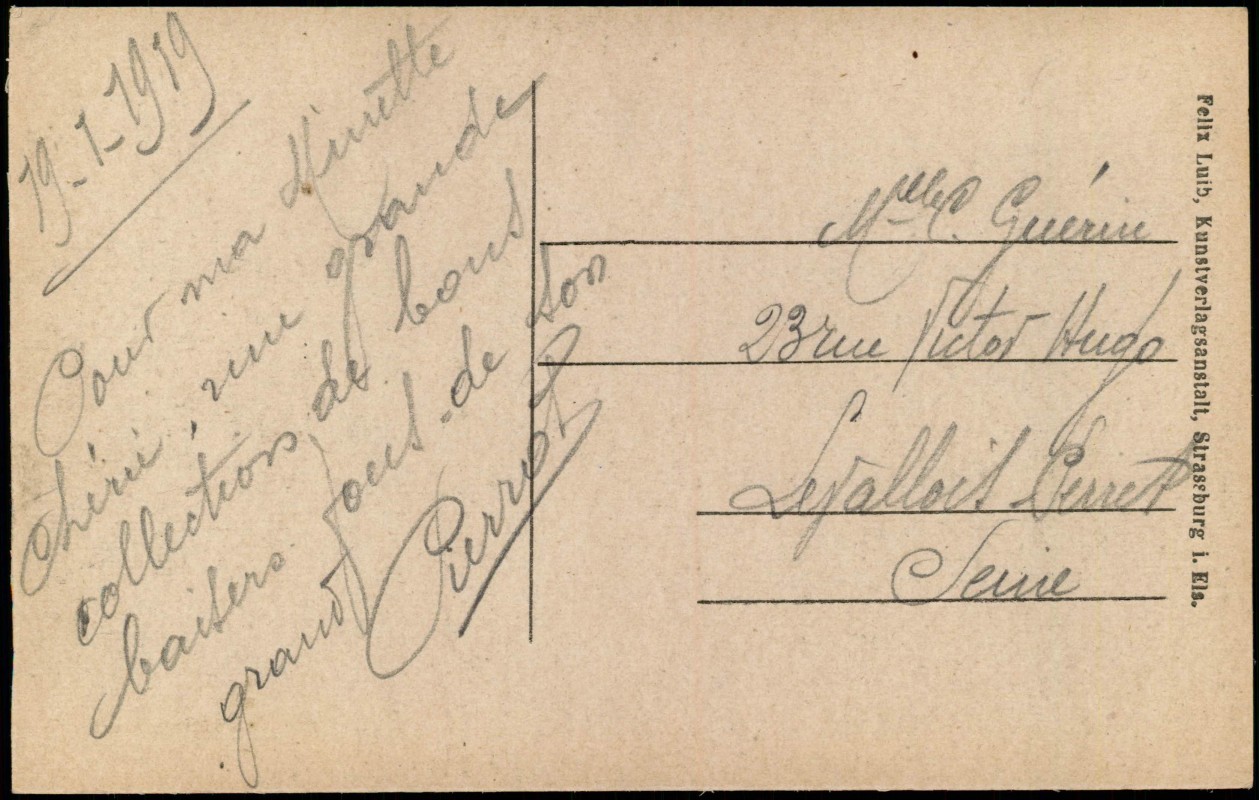 19-1-1919
Pour ma Minette
chérie, une grande
collection de bons
baisers fous de son
grand
Pierrot
Mlle C. Guérin
23 rue Victor Hugo
Levallois-Perret
Seine
Felix Luib, Kunstverlagsanstalt, Straßburg i. Els.